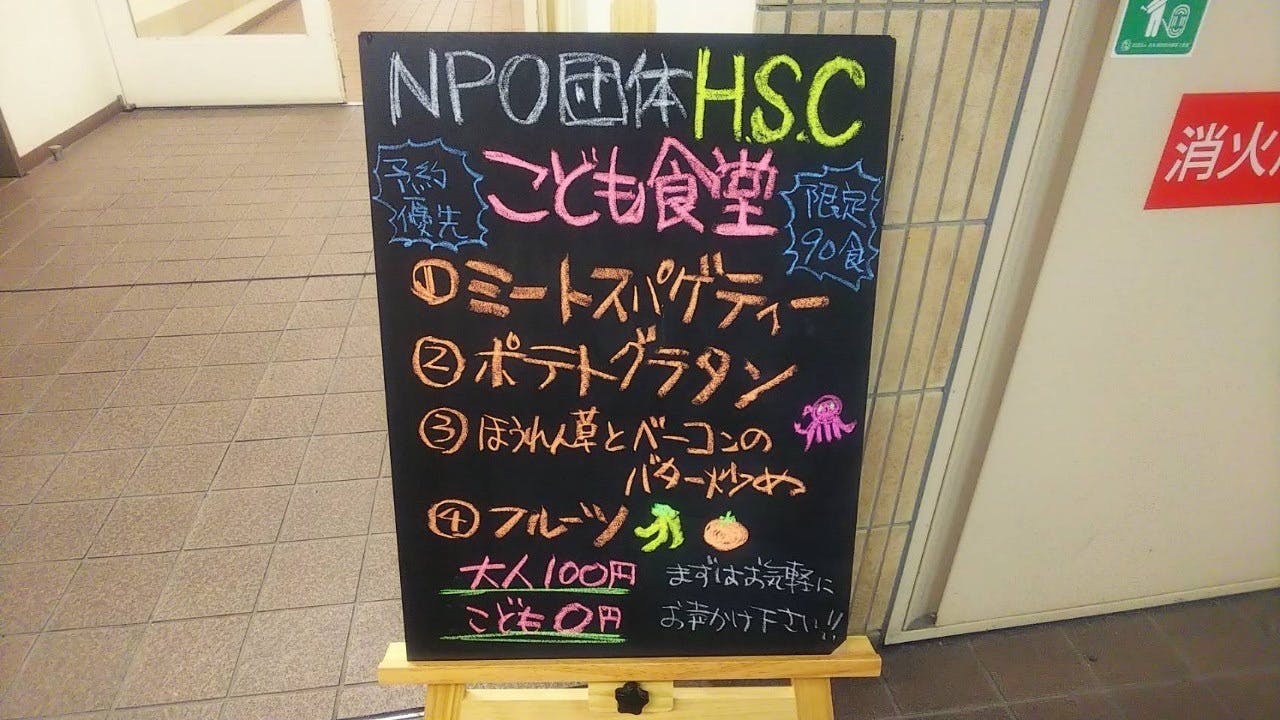 NPO団体H.S.C
予約
優先
こども食堂
限定
90食
①ミートスパゲティー
②ポテトグラタン
③ほうれん草とベーコンの
バター炒め
④フルーツ
大人100円
こども0円
まずはお気軽に
お声かけ下さい!!
消火